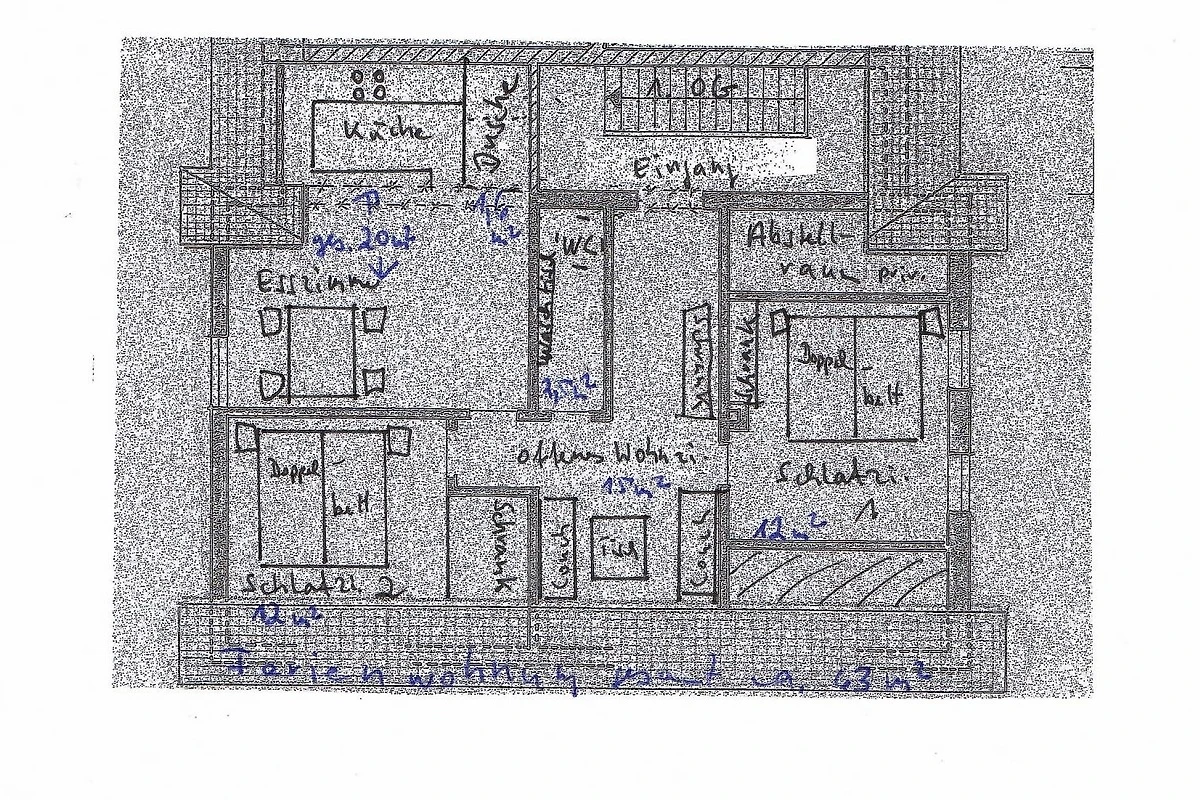 1. OG
Küche
Dusche
Eingang
1,6
m²
ges. 20 m²
WC
Abstell-
raum priv.
Esszimmer
Waschtisch
Schrank
Schrank
Doppel-
bett
offenes Wohnzi.
15 m²
Doppel-
bett
Schlafzi.
1
12 m²
Schrank
Couch
Tisch
Couch
Schlafzi 2
12 m²
Ferienwohnung gesamt ca. 63 m²